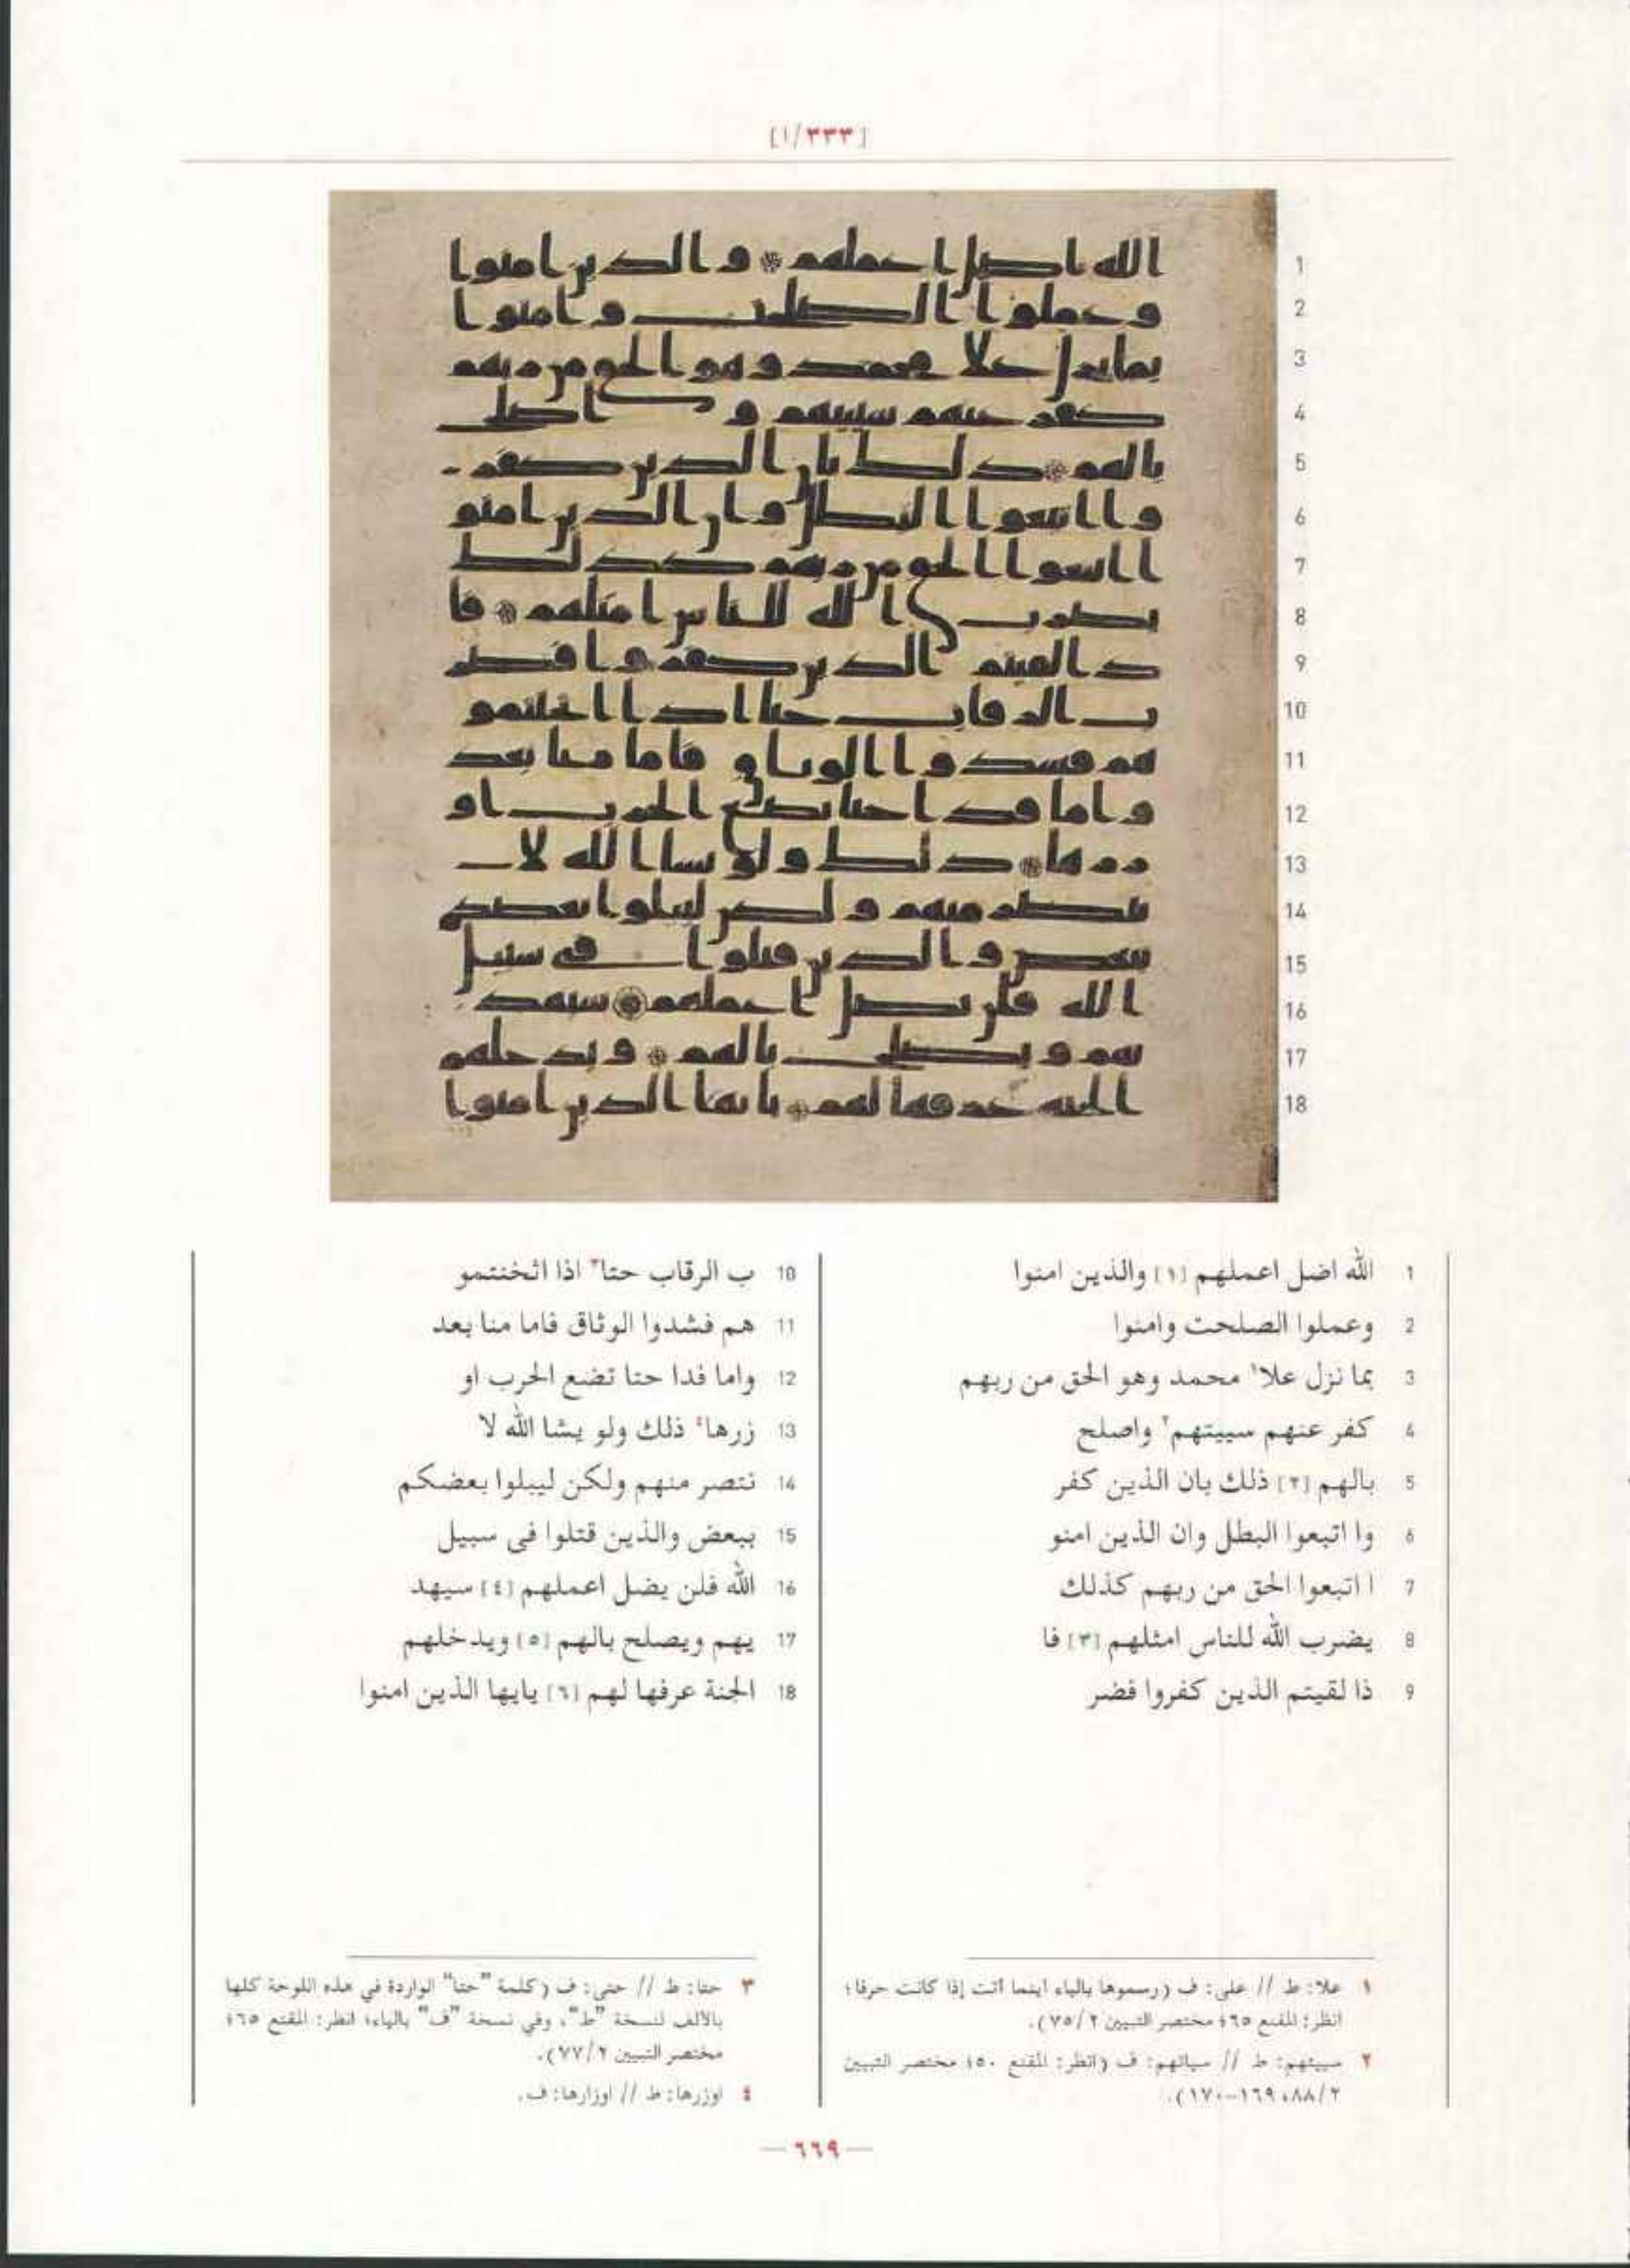 [١/٣٣٣]
1 الله اضل اعملهم [١] والذين امنوا
2 وعملوا الصلحت وامنوا
3 بما نزل علا١ محمد وهو الحق من ربهم
4 كفر عنهم سييتهم٢ واصلح
5 بالهم [٢] ذلك بان الذين كفر
6 وا اتبعوا البطل وان الذين امنو
7 ا اتبعوا الحق من ربهم كذلك
8 يضرب الله للناس امثلهم [٣] فا
9 ذا لقيتم الذين كفروا فضر
10 ب الرقاب حتا٣ اذا اثخنتمو
11 هم فشدوا الوثاق فاما منا بعد
12 واما فدا حتا تضع الحرب او
13 زرها٤ ذلك ولو يشا الله لا
14 نتصر منهم ولكن ليبلوا بعضكم
15 ببعض والذين قتلوا فى سبيل
16 الله فلن يضل اعملهم [٤] سيهد
17 يهم ويصلح بالهم [٥] ويدخلهم
18 الجنة عرفها لهم [٦] يايها الذين امنوا
١ علا: ط // على: ف (رسموها بالياء اينما أتت إذا كانت حرفا؛
انظر: المقنع ٦٥؛ مختصر التبيين ٧٥/٢).
٢ سييتهم: ط // سياتهم: ف (انظر: المقنع ٥٠؛ مختصر التبيين
٨٨/٢، ١٦٩-١٧٠).
٣ حتا: ط // حتى: ف (كلمة "حتا" الواردة في هذه اللوحة كلها
بالألف لنسخة "ط"، وفي نسخة "ف" بالياء؛ انظر: المقنع ٦٥؛
مختصر التبيين ٧٧/٢).
٤ اوزرها: ط // اوزارها: ف.
— ٦٦٩ —